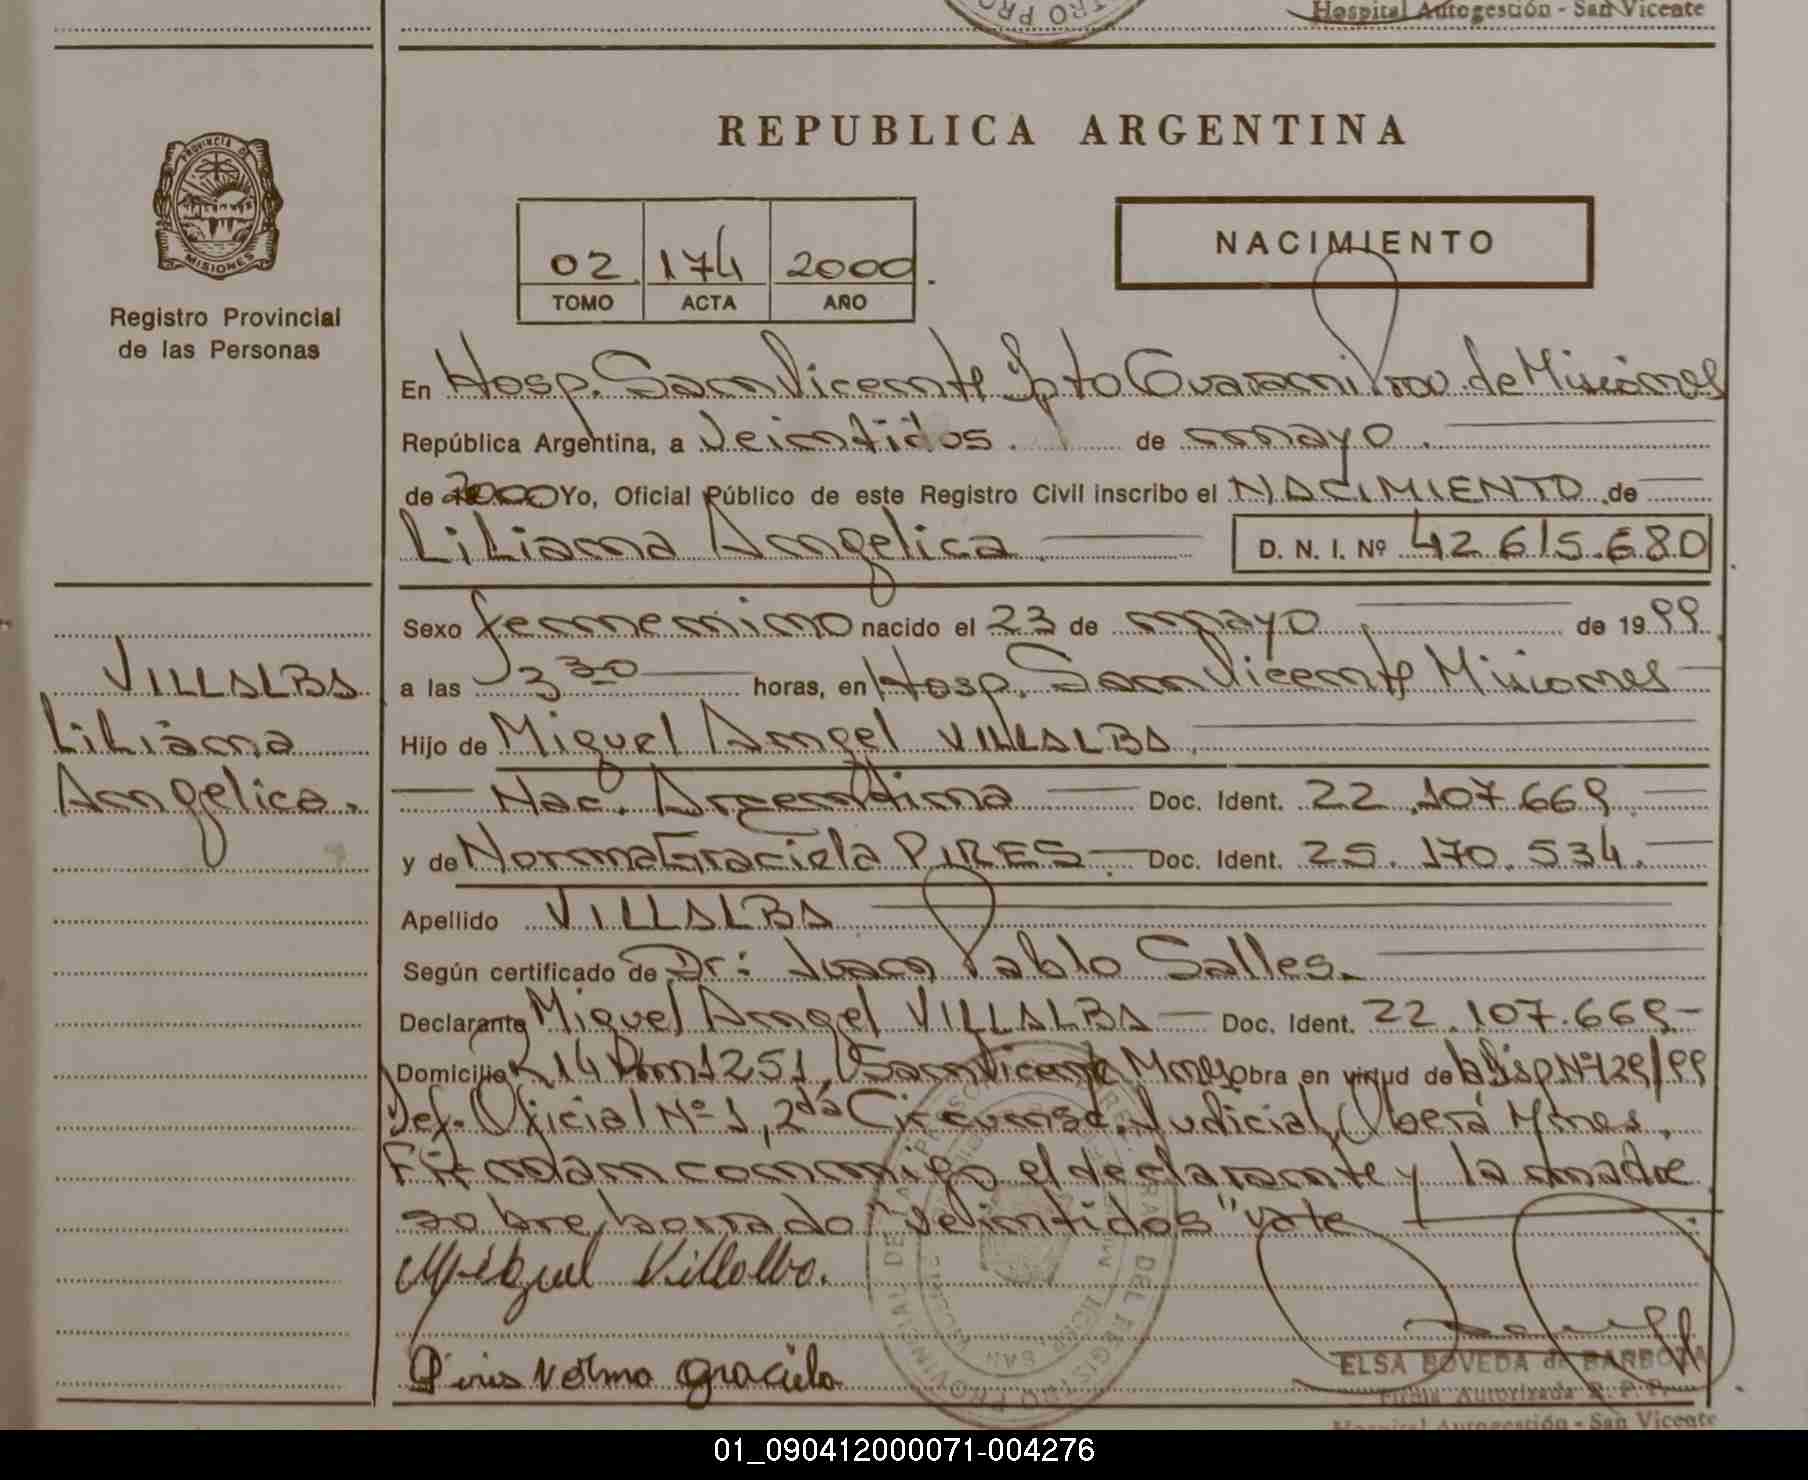 Hospital Autogestión - San Vicente
PROVINCIA DE
MISIONES
Registro Provincial
de las Personas
REPUBLICA ARGENTINA
02 174 2000
TOMO ACTA AÑO
NACIMIENTO
En Hosp. San Vicente Dpto Guarani Prov. de Misiones
República Argentina, a Veintidos de mayo
de 2000 Yo, Oficial Público de este Registro Civil inscribo el NACIMIENTO de
Liliana Angelica D. N. I. Nº 42.615.680
Sexo femenino nacido el 23 de mayo de 1999
a las 3 30 horas, en Hosp. San Vicente Misiones
Hijo de Miguel Angel VILLALBA
Nac. Argentina Doc. Ident. 22.107.669
y de Norma Graciela PIRES Doc. Ident. 25.170.534
Apellido VILLALBA
Según certificado de Dr: Juan Pablo Salles.
Declarante Miguel Angel VILLALBA Doc. Ident. 22.107.669
Domicilio R 14 Km 1251, San Vicente Mnes Obra en virtud de Disp. Nº 129/99
Def. Oficial Nº 1, 2da Circunsc. Judicial, Oberá Mnes.
Firman conmigo el declarante y la madre
sobre borrado "Veintidos" vale
Miguel Villalba.
Piris Norma Graciela
ELSA BOVEDA de BARBOZA
Firma Autorizada R. P. P.
Hospital Autogestión - San Vicente
VILLALBA
Liliana
Angelica.
01_090412000071-004276